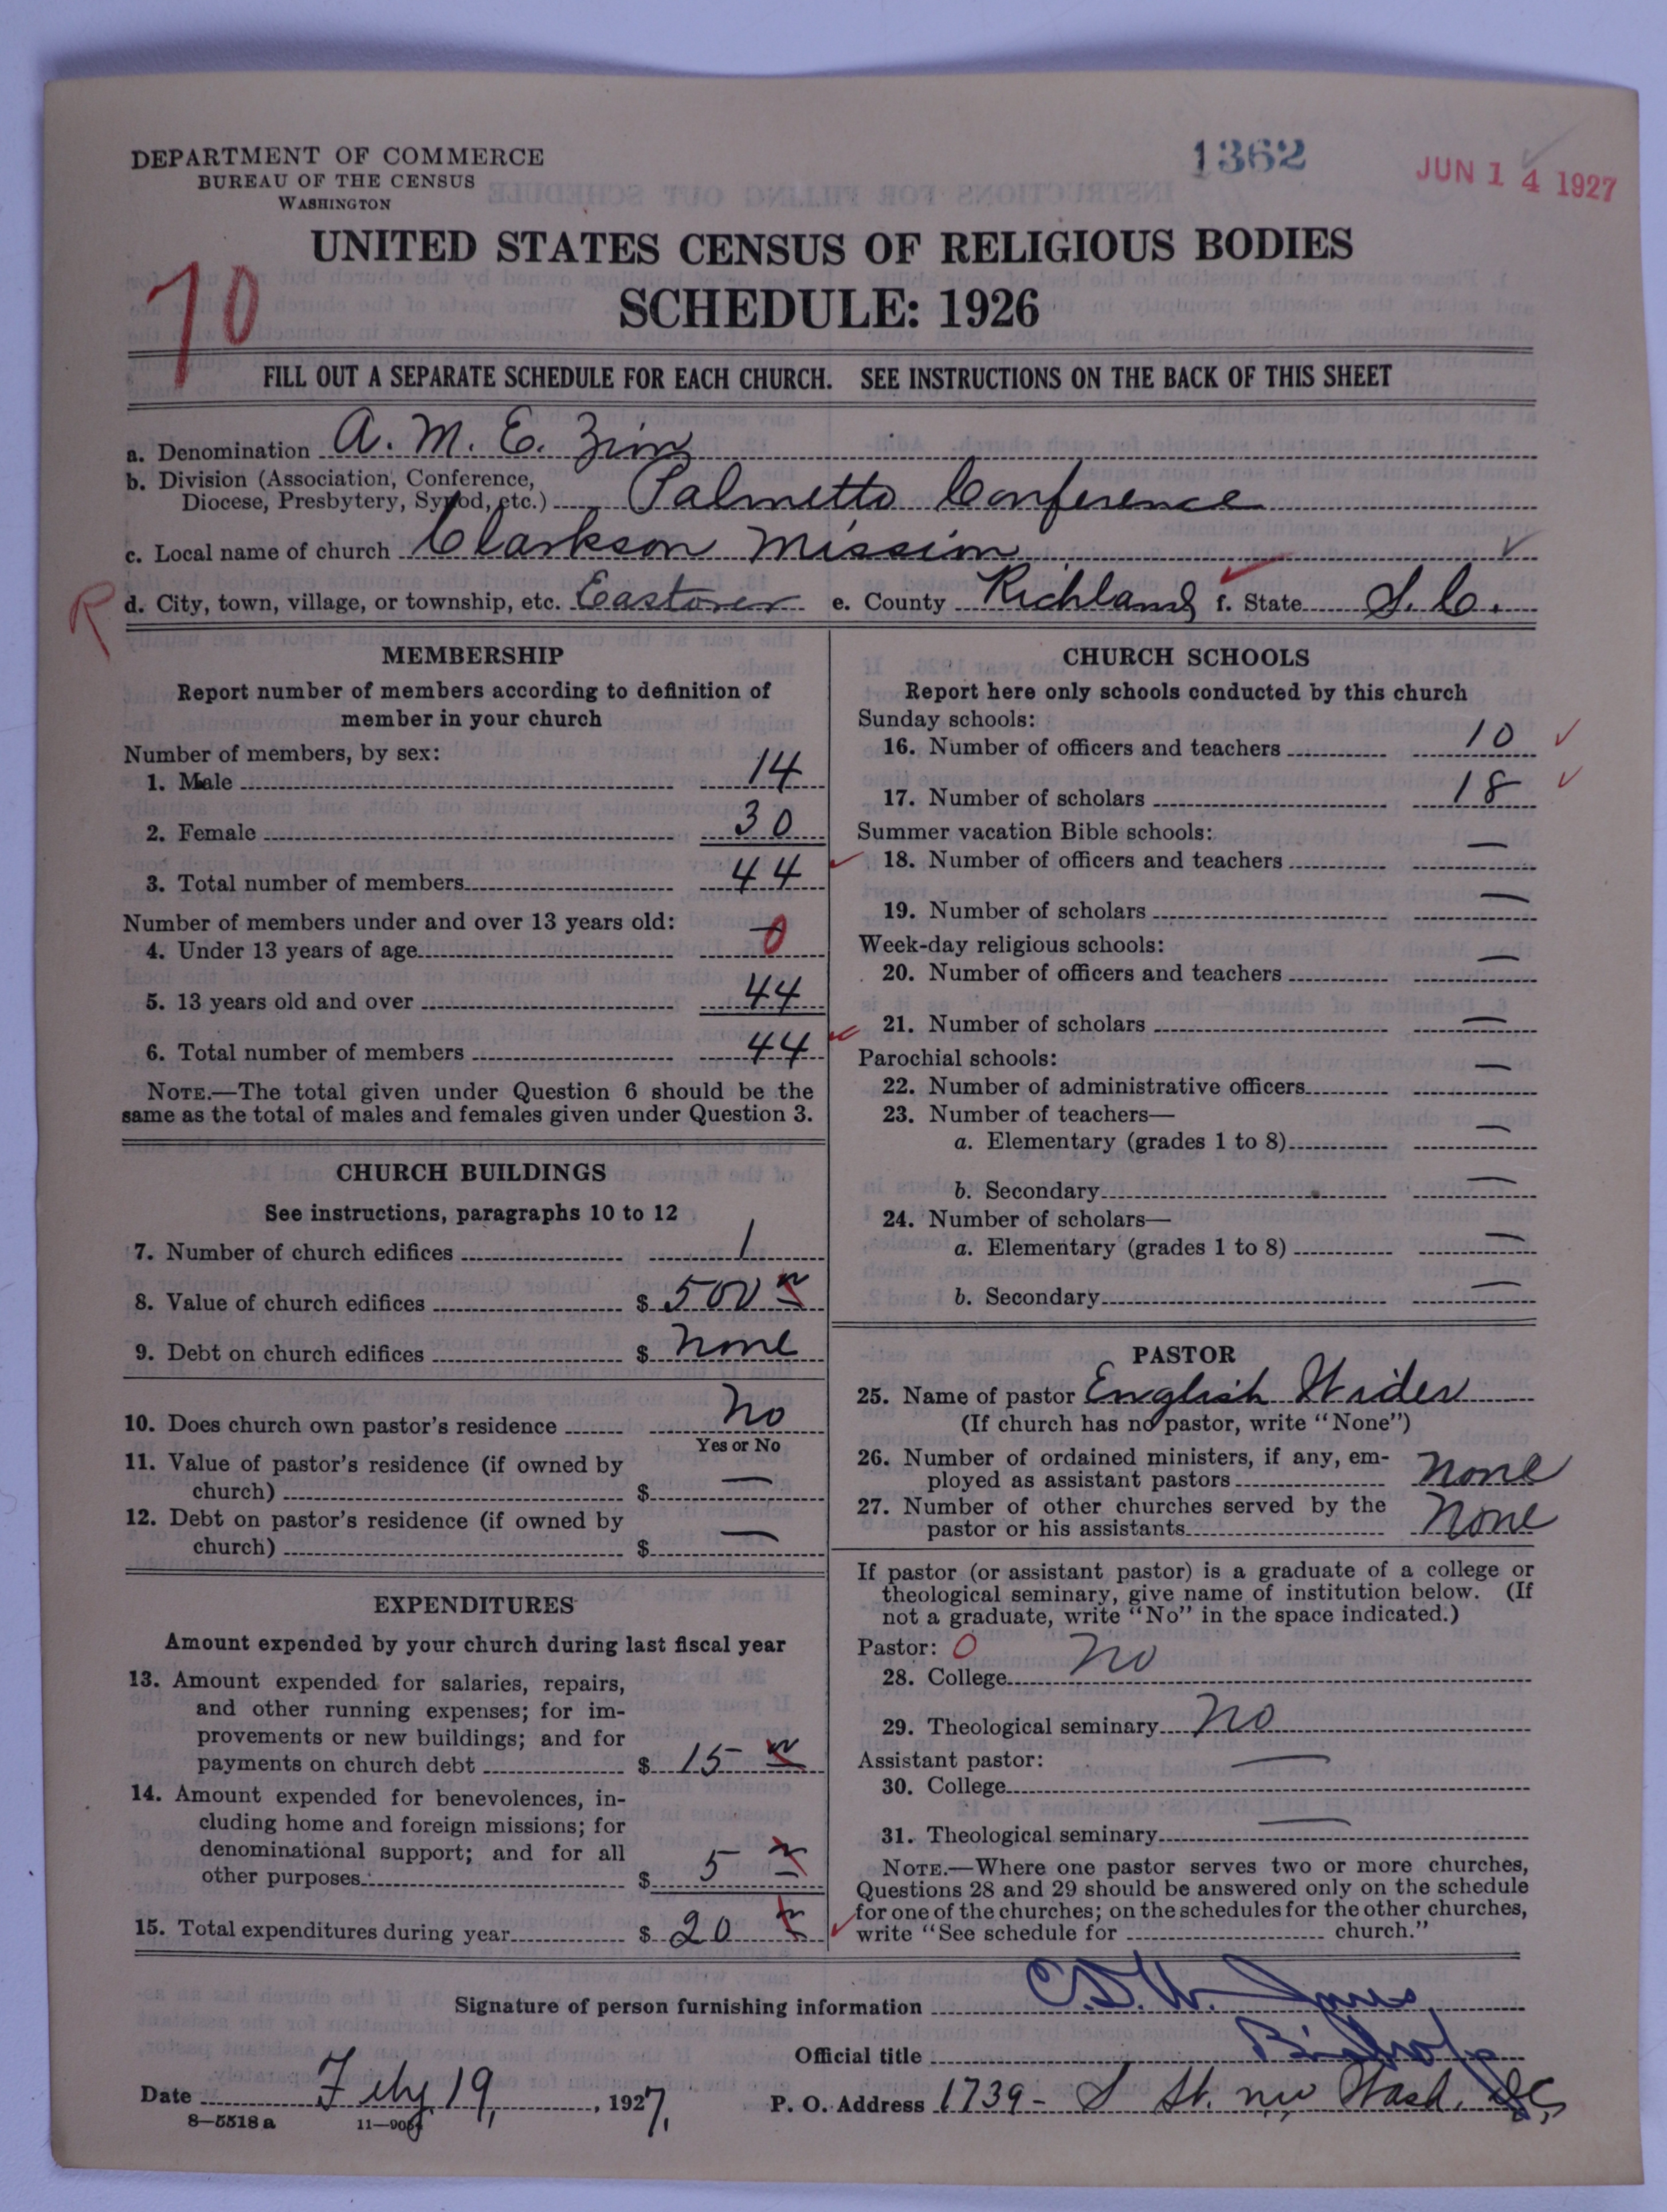 DEPARTMENT OF COMMERCE
BUREAU OF THE CENSUS
WASHINGTON
1362
JUN 14 1927
UNITED STATES CENSUS OF RELIGIOUS BODIES
SCHEDULE: 1926
70
FILL OUT A SEPARATE SCHEDULE FOR EACH CHURCH. SEE INSTRUCTIONS ON THE BACK OF THIS SHEET
a. Denomination A. M. E. Zion
b. Division (Association, Conference,
Diocese, Presbytery, Synod, etc.) Palmetto Conference
c. Local name of church Clarkson Mission
R d. City, town, village, or township, etc. Eastover e. County Richland f. State S. C.
MEMBERSHIP
Report number of members according to definition of
member in your church
Number of members, by sex:
1. Male 14
2. Female 30
3. Total number of members 44
Number of members under and over 13 years old:
4. Under 13 years of age 0
5. 13 years old and over 44
6. Total number of members 44
NOTE.—The total given under Question 6 should be the
same as the total of males and females given under Question 3.
CHURCH BUILDINGS
See instructions, paragraphs 10 to 12
7. Number of church edifices 1
8. Value of church edifices $ 500
9. Debt on church edifices $ None
10. Does church own pastor's residence No
Yes or No
11. Value of pastor's residence (if owned by
church) $ —
12. Debt on pastor's residence (if owned by
church) $ —
EXPENDITURES
Amount expended by your church during last fiscal year
13. Amount expended for salaries, repairs,
and other running expenses; for im-
provements or new buildings; and for
payments on church debt $ 15
14. Amount expended for benevolences, in-
cluding home and foreign missions; for
denominational support; and for all
other purposes $ 5
15. Total expenditures during year $ 20
CHURCH SCHOOLS
Report here only schools conducted by this church
Sunday schools:
16. Number of officers and teachers 10
17. Number of scholars 18
Summer vacation Bible schools:
18. Number of officers and teachers —
19. Number of scholars —
Week-day religious schools:
20. Number of officers and teachers —
21. Number of scholars —
Parochial schools:
22. Number of administrative officers —
23. Number of teachers—
a. Elementary (grades 1 to 8) —
b. Secondary —
24. Number of scholars—
a. Elementary (grades 1 to 8) —
b. Secondary —
PASTOR
25. Name of pastor English Wider
(If church has no pastor, write "None")
26. Number of ordained ministers, if any, em-
ployed as assistant pastors None
27. Number of other churches served by the
pastor or his assistants None
If pastor (or assistant pastor) is a graduate of a college or
theological seminary, give name of institution below. (If
not a graduate, write "No" in the space indicated.)
Pastor: 0
28. College No
29. Theological seminary No
Assistant pastor:
30. College —
31. Theological seminary —
NOTE.—Where one pastor serves two or more churches,
Questions 28 and 29 should be answered only on the schedule
for one of the churches; on the schedules for the other churches,
write "See schedule for church."
Signature of person furnishing information
Official title Bishop
Date 19, 1927. P. O. Address 1739- S St. nw Wash. DC,
8—5518a 11—9051